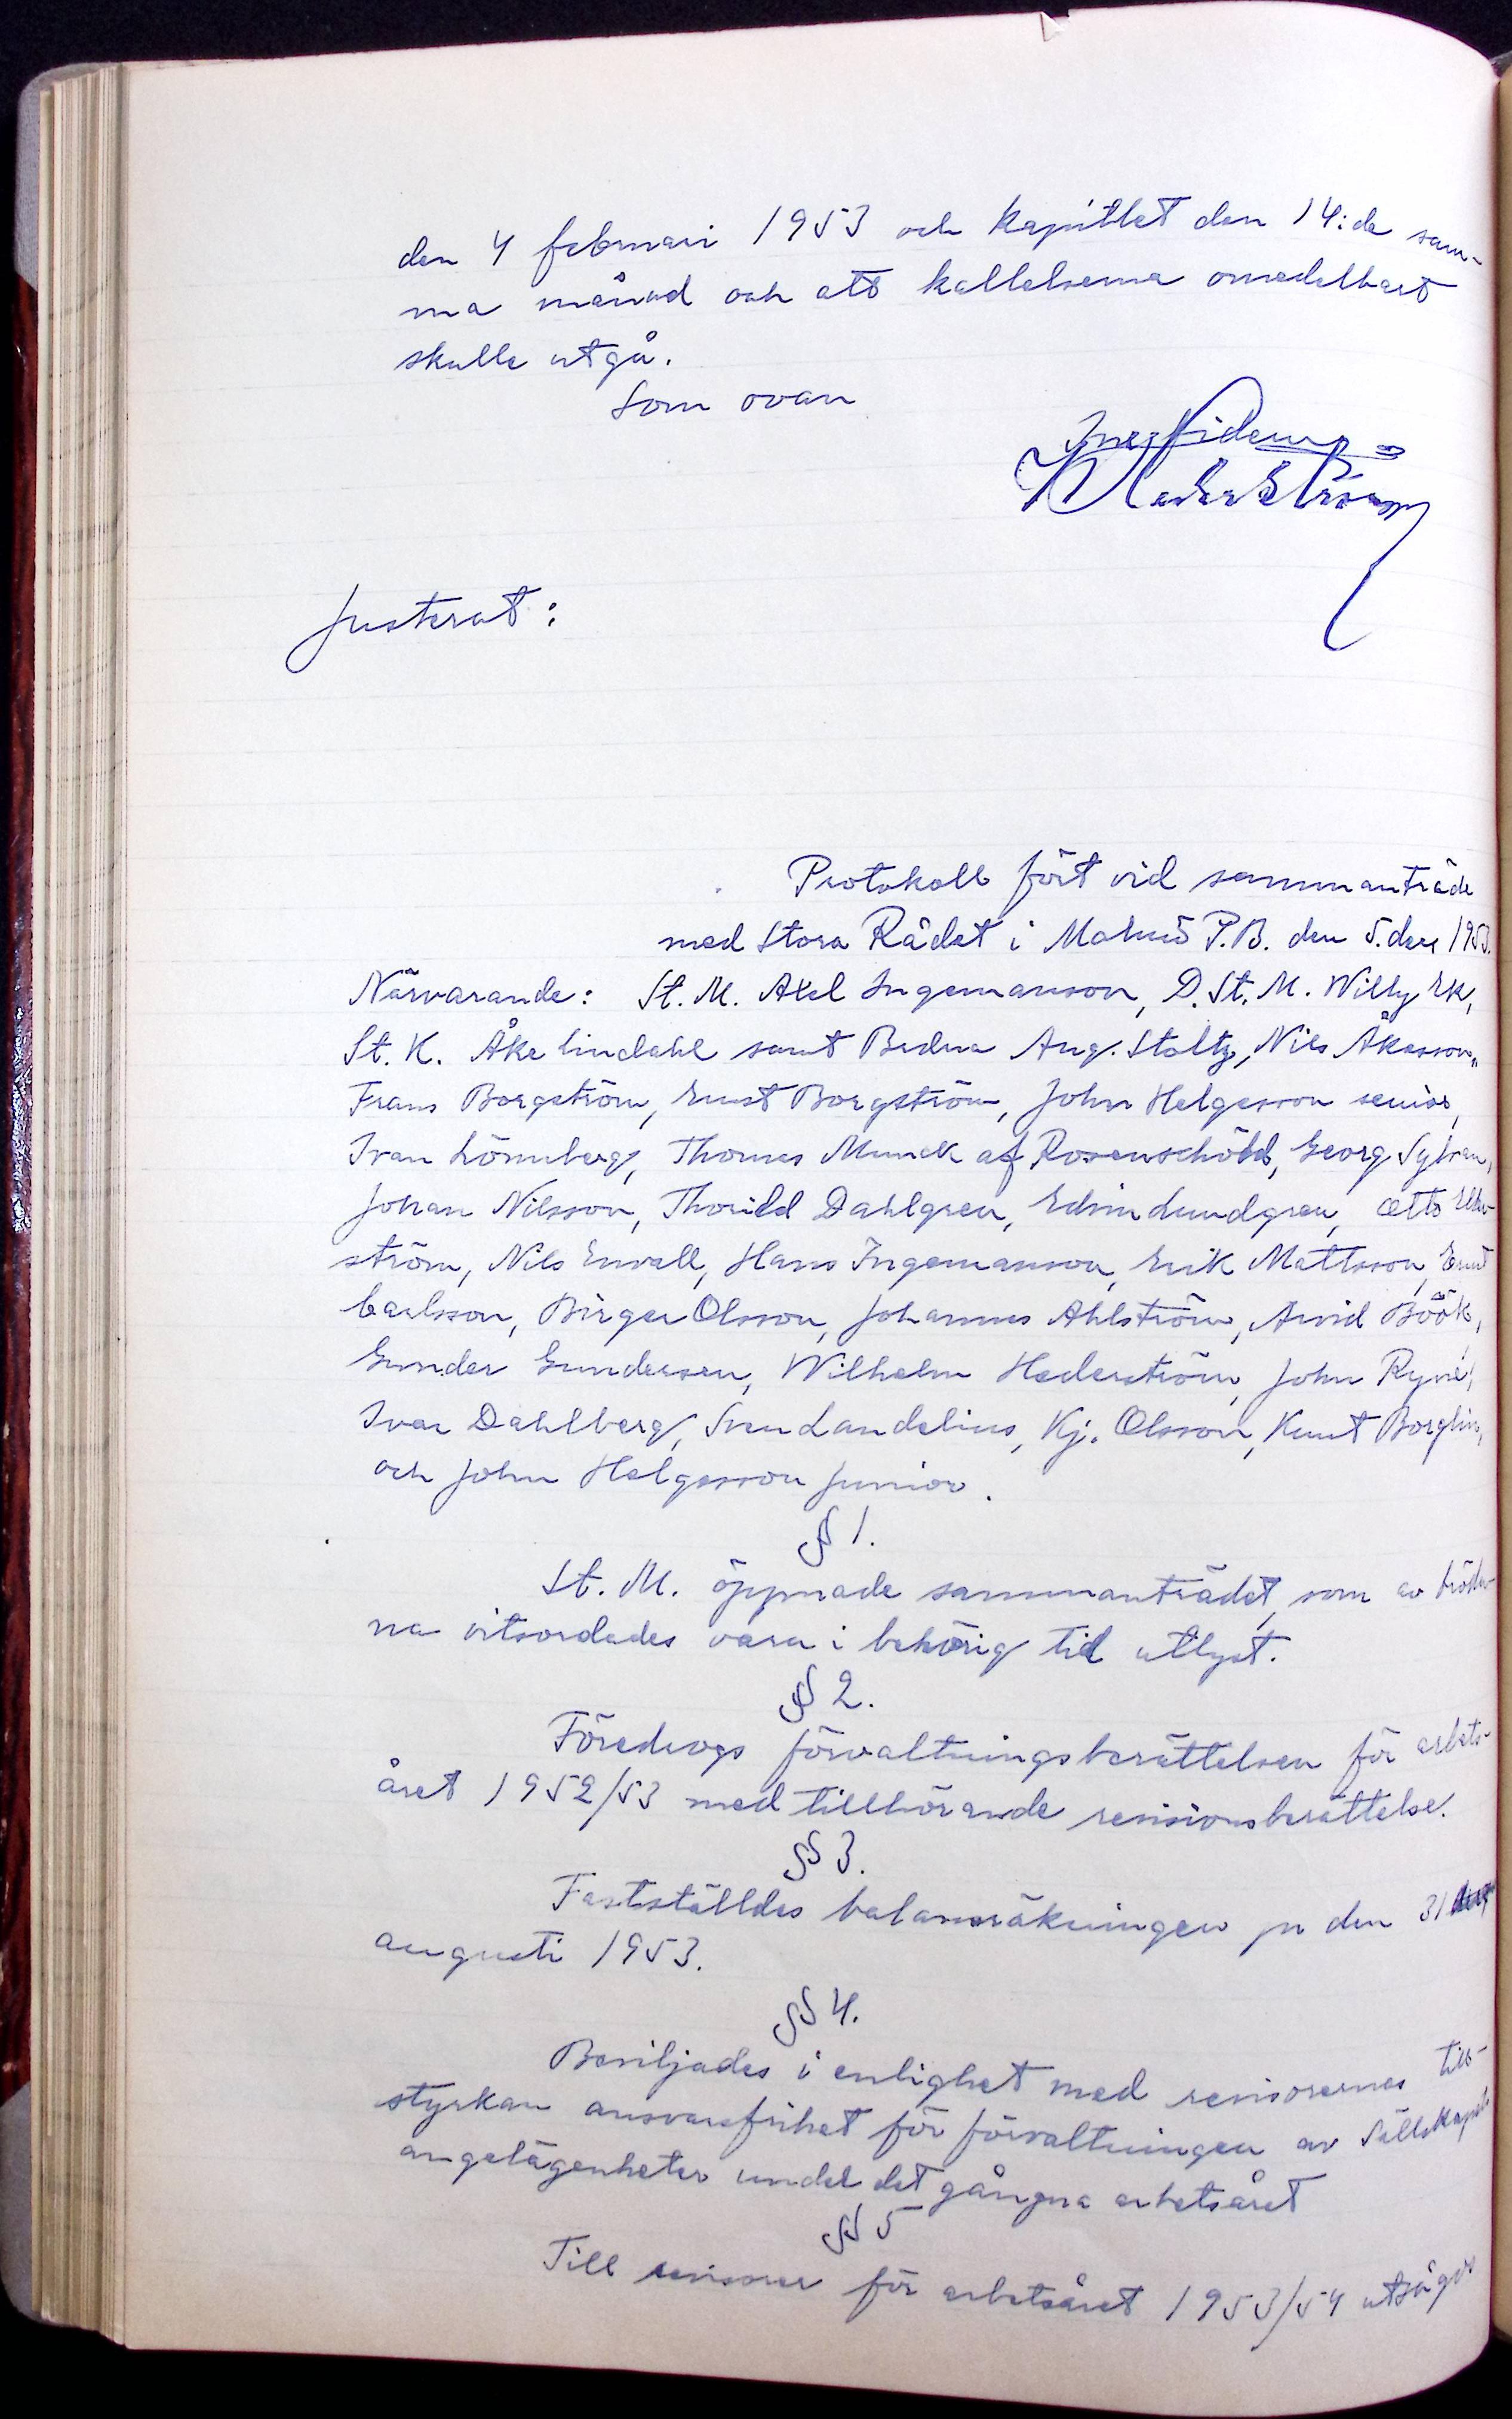 den 4 februari 1953 och kapitlet den 14:de sam-
ma månad och att kallelserna omedelbart
skulle utgå.
Som ovan
W Hederström
Justerat:
Protokoll fört vid sammanträde
med Stora Rådet i Malmö P.B. den 5. dec 1953.
Närvarande: St. M. Axel Ingemanson, D. St. M. Willy Ek,
St. K. Åke Lindahl samt Bröderna Aug. Stoltz, Nils Åkesson,
Frans Borgström, Ernst Borgström, John Helgesson senior,
Ivan Lönnberg, Thomas Munck af Rosenschöld, Georg Sylvan,
Johan Nilsson, Thorild Dahlgren, Edvin Lundgren, Otto
ström, Nils Envall, Hans Ingemanson, Erik Mattsson, Ernst
Carlsson, Birger Olsson, Johannes Ahlström, Arvid Böök,
Gunder Gundersen, Wilhelm Hederström, John Ryné,
Ivar Dahlberg, Sven Landelius, Kj. Olsson, Knut Borglin,
och John Helgesson junior.
§ 1.
St. M. öppnade sammanträdet, som av bröder-
na vitsordades vara i behörig tid utlyst.
§ 2.
Föredrogs förvaltningsberättelsen för arbets-
året 1952/53 med tillhörande revisionsberättelse.
§ 3.
Fastställdes balansräkningen pr den 31
augusti 1953.
§ 4.
Beviljades i enlighet med revisorernas till-
styrkan ansvarsfrihet för förvaltningen av Sällskapets
angelägenheter under det gångna arbetsåret
§ 5
Till revisorer för arbetsåret 1953/54 utsågos